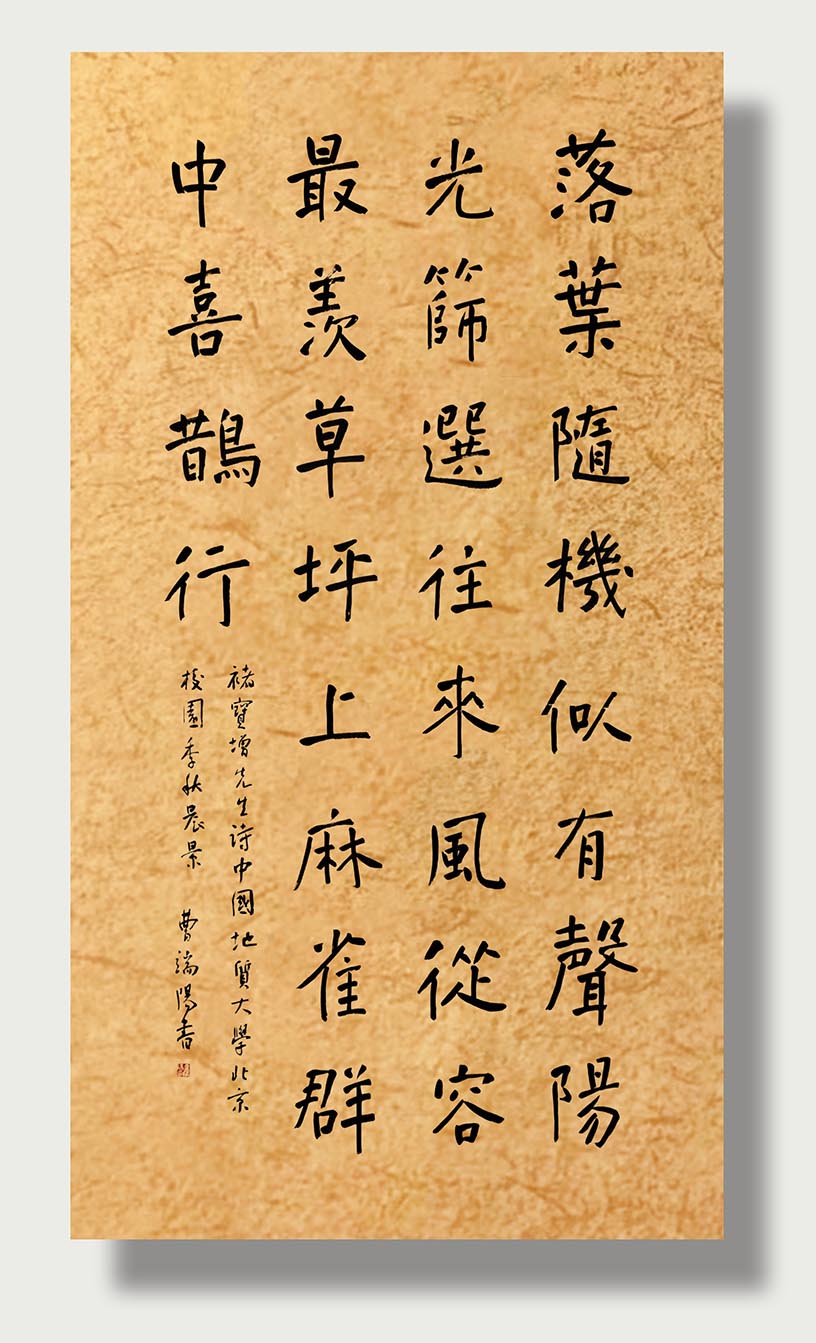 落葉隨機似有聲陽
光篩選往來風從容
最羨草坪上麻雀群
中喜鵲行
褚寶增先生詩中國地質大學北京
校園季秋晨景 曹端陽書